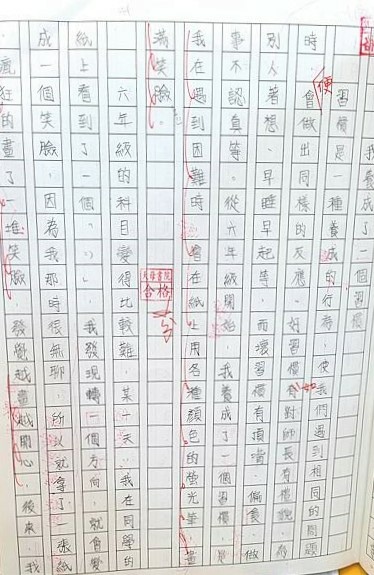 我養成了一個習慣
習慣是一種養成的行為，使我們遇到相同的問題
時，會做出同樣的反應。好習慣有對師長有禮貌、為
別人著想、早睡早起等，而壞習慣有頂嘴、偏食、做
事不認真等。從六年級開始，我養成了一個習慣，是
我在遇到困難時，會在紙上用各種顏色的螢光筆畫
滿笑臉。
六年級的科目變得比較難，某一天，我在同學的
紙上看到了一個，我發現轉一個方向，就會變
成一個笑臉，因為我那時很無聊，所以就拿了一張紙
，瘋狂的畫了一堆笑臉，發覺越畫越開心。後來，我
便
合格